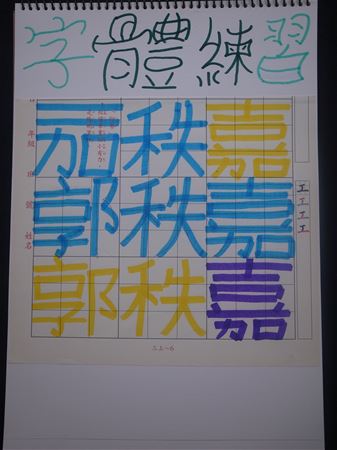 字體練習
茄秩嘉
郭秩嘉
郭秩嘉
年級
號
姓名
工
工
工
工
三上~6